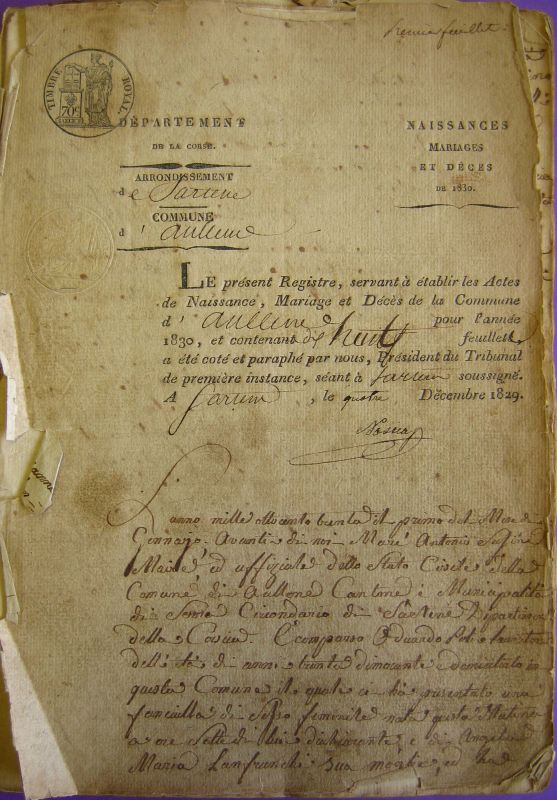 Premier feuillet.
TIMBRE ROYAL
70c
DÉPARTEMENT
DE LA CORSE.
ARRONDISSEMENT
de Sartene
COMMUNE
d' Aullene
NAISSANCES
MARIAGES
ET DÉCÈS
DE 1830.
LE présent Registre, servant à établir les Actes
de Naissance, Mariage et Décès de la Commune
d' Aullene pour l'année
1830, et contenant de huit feuillets
a été coté et paraphé par nous, Président du Tribunal
de première instance, séant à Sartene soussigné.
A Sartene, le quatre Décembre 1829.
L'anno mille ottocento trenta il primo del Mese di
Gennajo. Avanti di noi Antonio
ed uffiziale dello Stato Civile della
Comune di Aullene Cantone e Municipalità
di Serra Circondario di Sartene
della Corsica. È comparso
dell'età di anni trenta domiciliato in
questa Comune il quale ci hà presentato una
fanciulla di sesso feminile nata questa Matina
a ore sette di lui dichiarante, e di Angela
Maria Lanfranchi sua moglie, ed ha